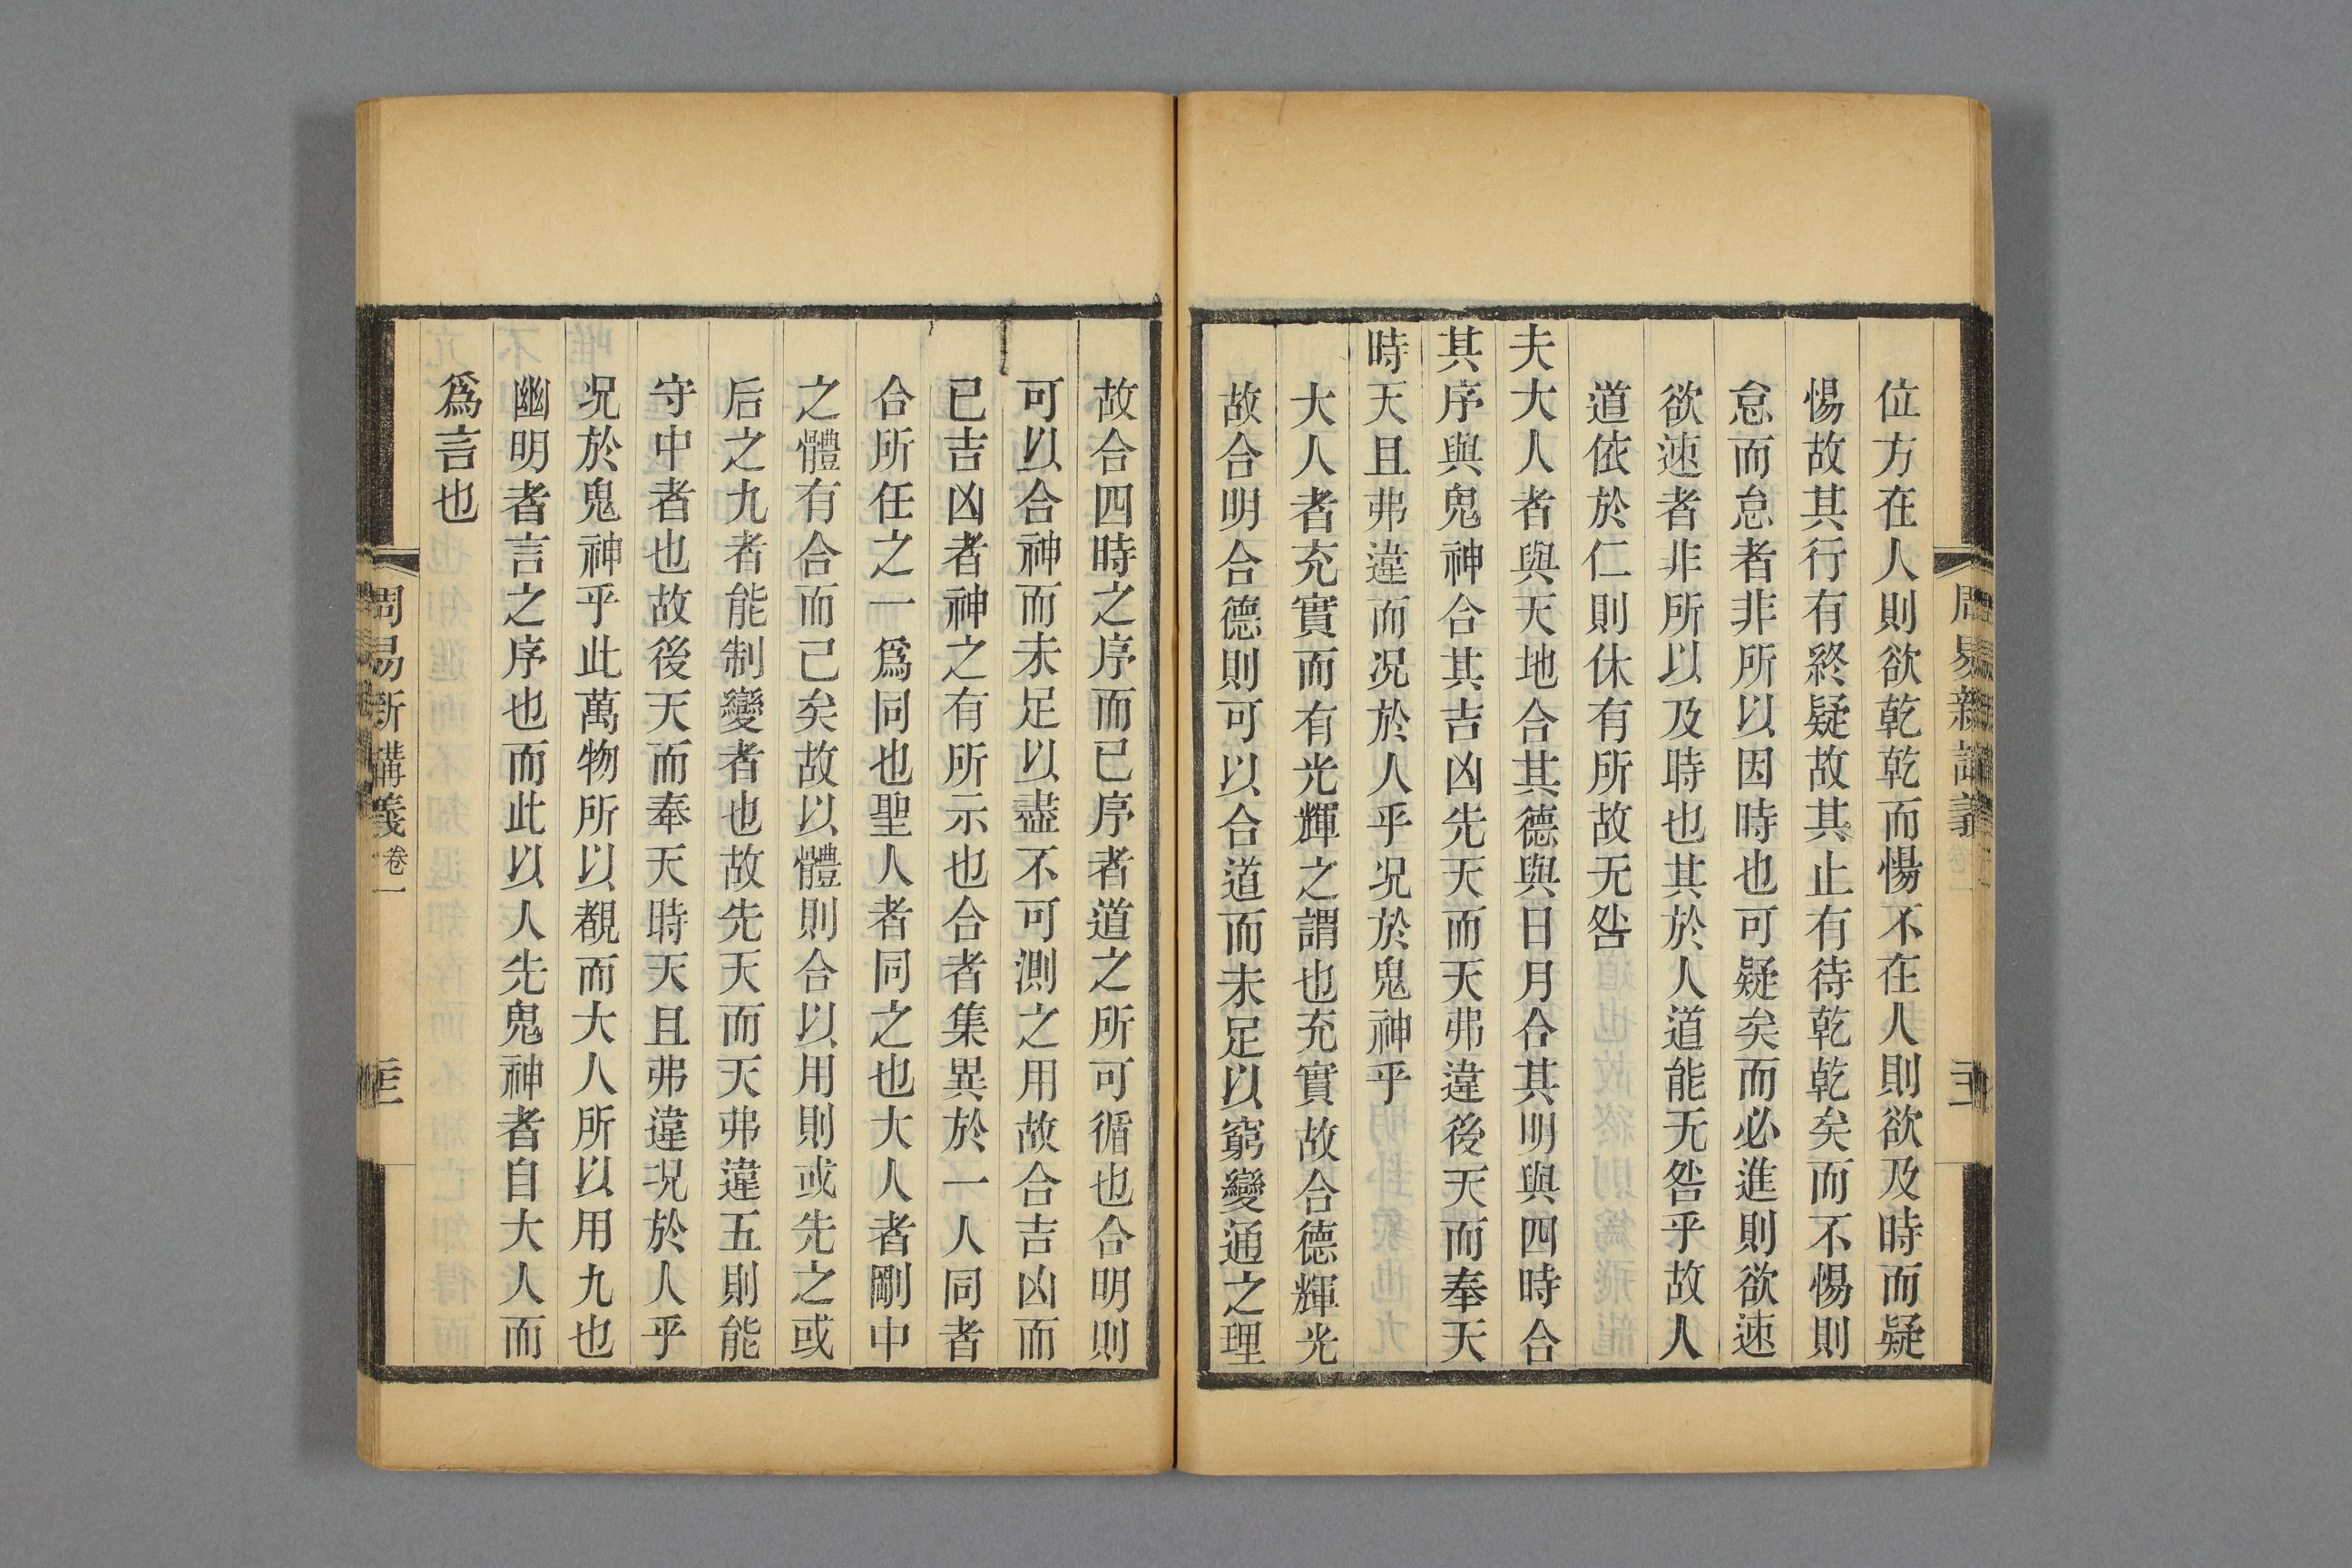 位方在人則欲乾乾而惕不在人則欲及時而疑
惕故其行有終疑故其止有待乾乾矣而不惕則
怠而怠者非所以因時也可疑矣而必進則欲速
欲速者非所以及時也其於人道能无咎乎故人
道依於仁則休有所故无咎
夫大人者與天地合其德與日月合其明與四時合
其序與鬼神合其吉凶先天而天弗違後天而奉天
時天且弗違而況於人乎況於鬼神乎
大人者充實而有光輝之謂也充實故合德輝光
故合明合德則可以合道而未足以窮變通之理
故合四時之序而已序者道之所可循也合明則
可以合神而未足以盡不可測之用故合吉凶而
已吉凶者神之有所示也合者集異於一人同者
合所任之一為同也聖人者同之也大人者剛中
之體有合而已矣故以體則合以用則或先之或
后之九者能制變者也故先天而天弗違五則能
守中者也故後天而奉天時天且弗違況於人乎
況於鬼神乎此萬物所以覩而大人所以用九也
幽明者言之序也而此以人先鬼神者自大人而
爲言也
周易新講義 卷一